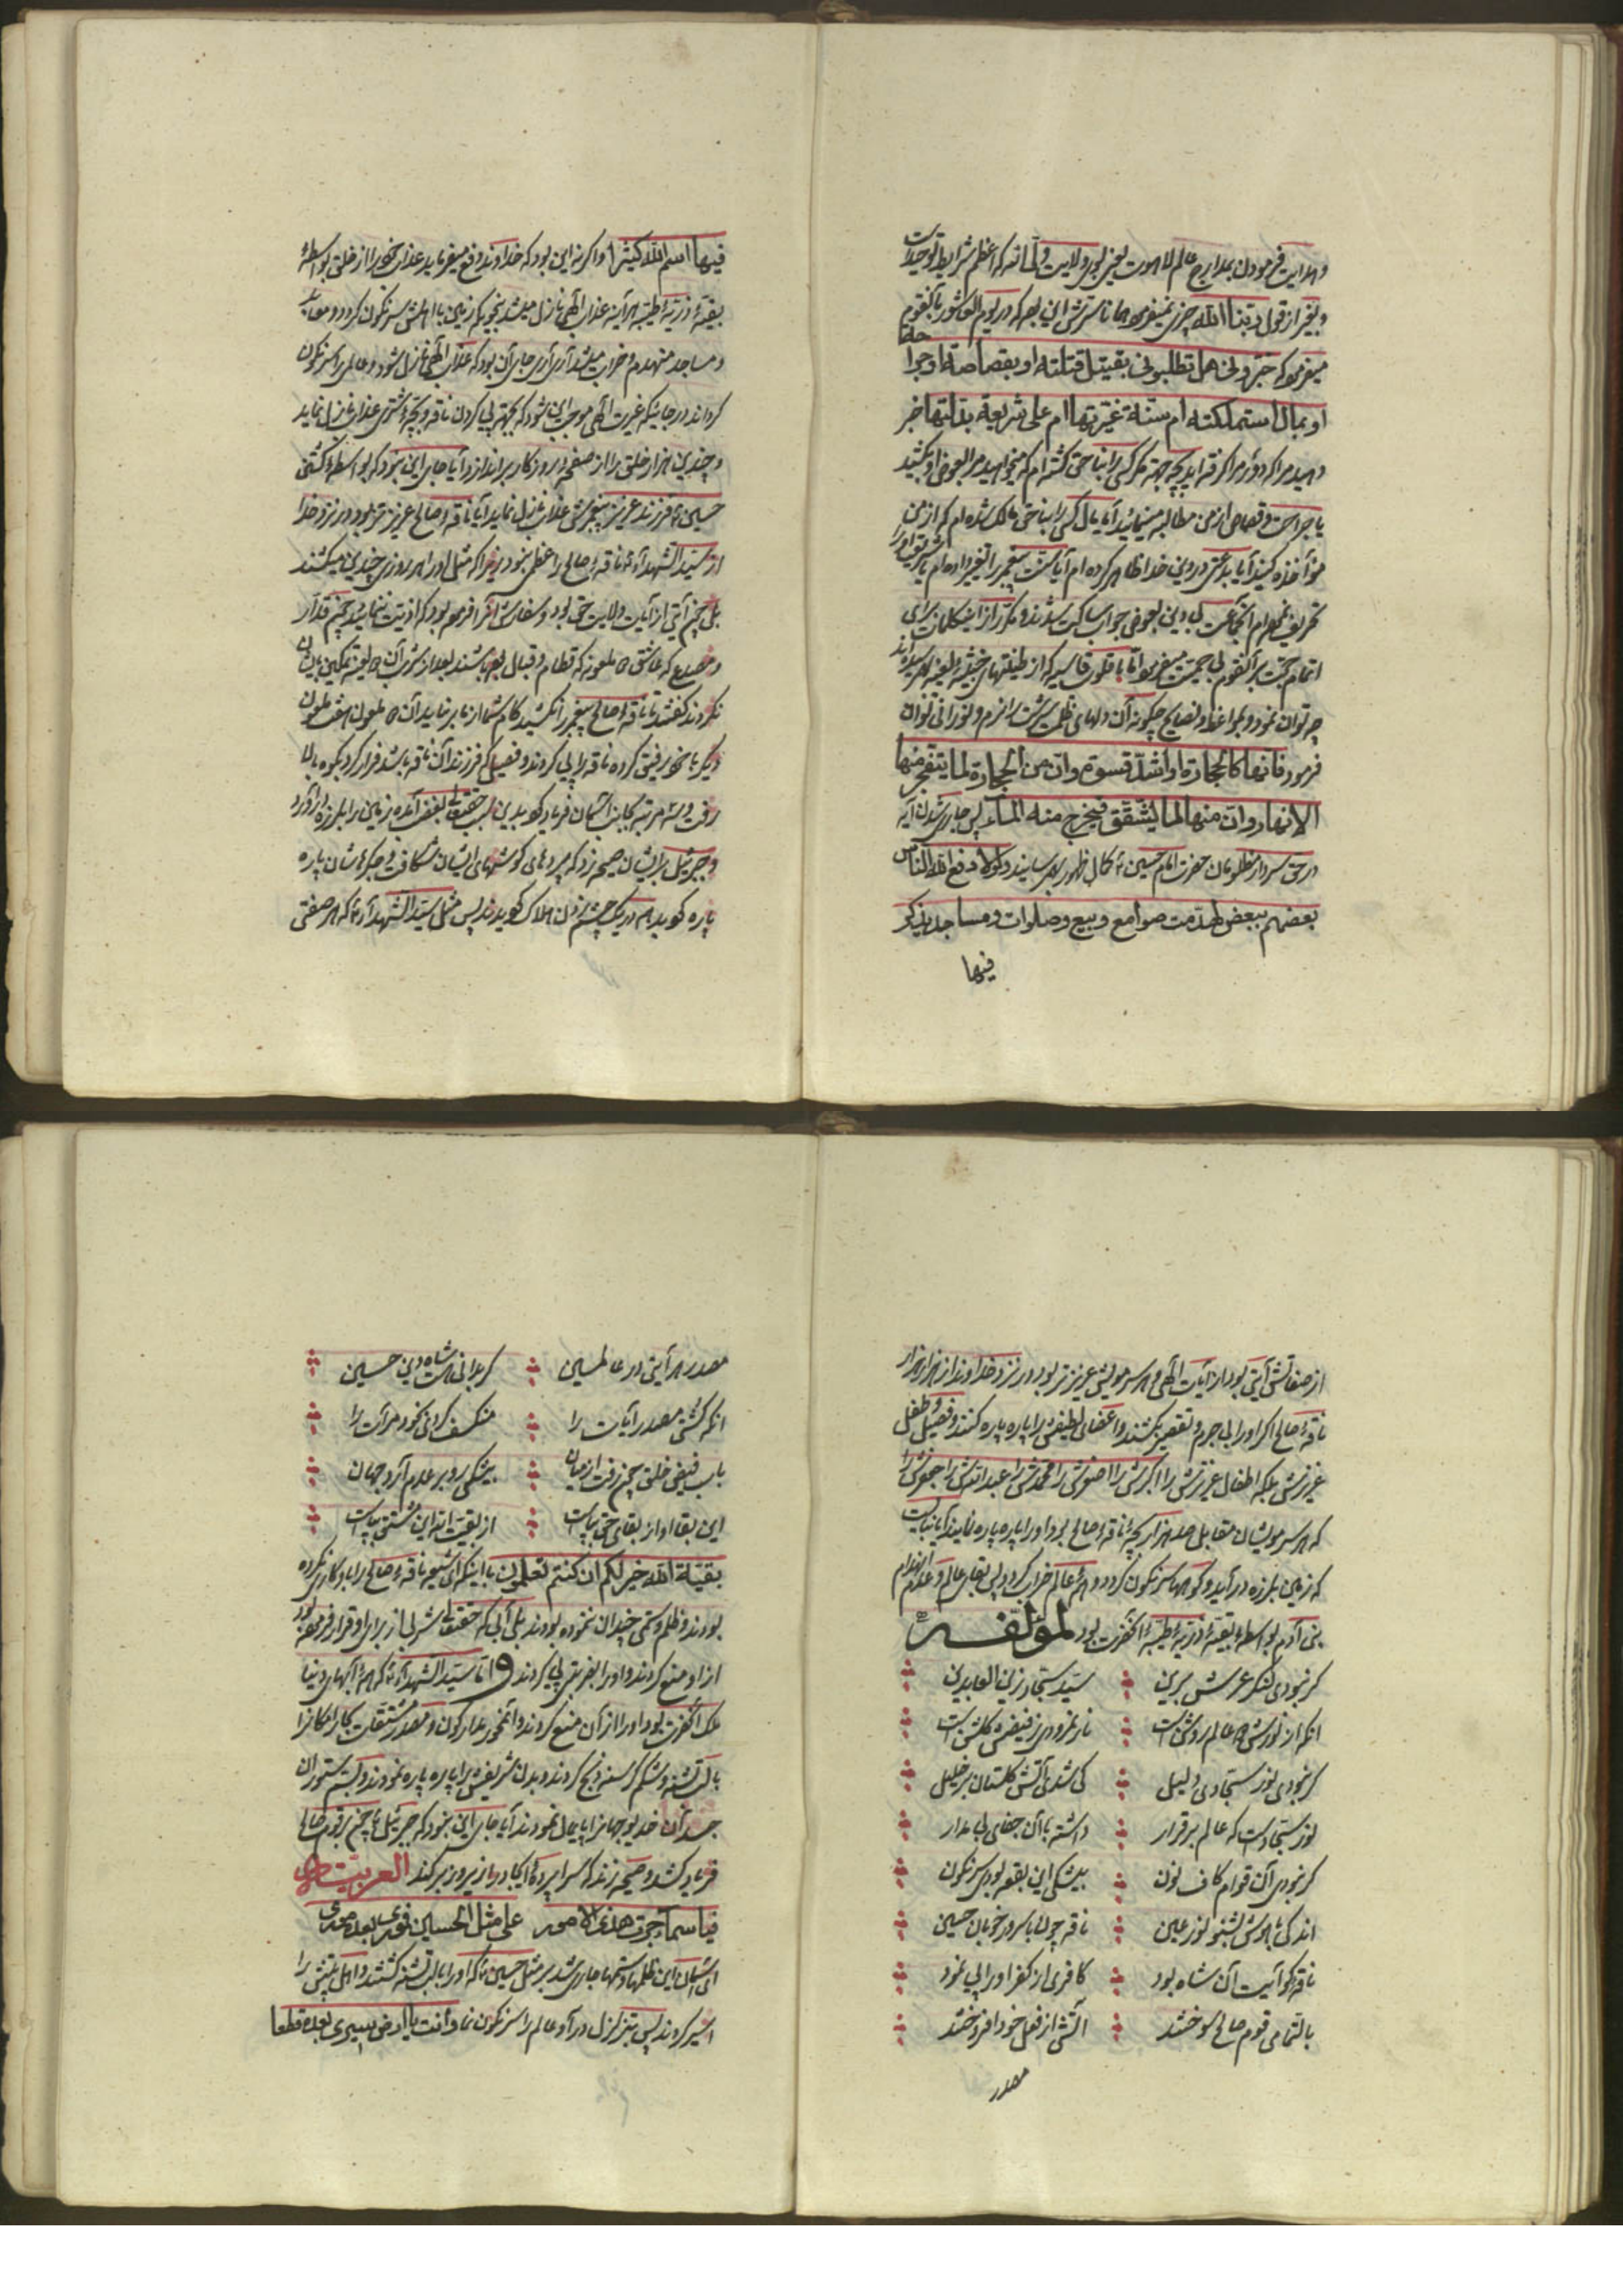 و هدایت فرمودن بمدارج عالم لاهوت بغیر نور ولایت و که اعظم شرایط توحید است
و بغیر از قول ربنا الله چیزی نمیفرمود همانا سرّش این بود که در یوم العاشور بآنقوم
میفرمود که خبّرونی هل تطلبونی بقتیل قتلته او بقصاصة او جراحة
او بمال استملکته ام سنّة غیّرتها ام علی شریعة بدّلتها خبر
دهید مرا که دور مرا گرفته‌اید بچه جهة مگر کسی را بناحق کشته‌ام که میخواهید مرا بعوض او بکشید
یا جراحت و قصاصی از من مطالبه مینمائید آیا مال کسی را بناحق مالک شده‌ام که از من
مؤاخذه کنید آیا بدعتی در دین خدا ظاهر کرده‌ام آیا سنّت پیغمبر را تغییر داده‌ام یا شریعت او را
تحریف نموده‌ام آنجماعت بی دین بعوض جواب ساکت شدند و مکرر از این کلمات برای
اتمام حجت بر آنقوم بی حمیت میفرمود امّا با قلوب قاسیه که از طینتهای خبیثه
چه توان نمود و بمواعظ و نصایح چگونه آن دلهای ظلمت سرشت را نرم و نورانی توان
فرمود فانها کالحجارة او اشدّ قسوة و ان من الحجارة لما یتفجر منها
الانهار و ان منها لما یشّقّق فیخرج منه المآء پس جاری شدن آیه
در حق سردار مظلومان حضرت امام حسین ع کمال ظهور بهم رسانید و لولا دفع الله الناس
بعضهم ببعض لهدّمت صوامع و بیع و صلوات و مساجد یذکر
فیها
فیها اسم الله کثیرا و اگر نه این بود که خداوند دفع میفرماید عذاب خود را از خلق بواسطهٔ
بقیّهٔ ذریّهٔ طیّبه هر آینه عذاب الهی نازل میشد بنحویکه زمین با اهلش سرنگون گردد و معابد
و مساجد منهدم و خراب میشد آری آری جای آن بود که عذاب الهی نازل شود و عالم را سرنگون
گرداند در جائیکه غیرت الهی موجب این شود که بجهة پی کردن ناقه و بچهٔ شتری عذاب نازل نماید
و چندین هزار خلق را از صفحهٔ روزگار براندازد آیا جای این نبود که بواسطهٔ کشتن
حسین ع فرزند عزیز پیغمبرش عذاب نازل نماید آیا ناقهٔ صالح عزیزتر بود در نزد خدا
از سیّد الشهدآء ع ناقهٔ صالح را عظمی نبود زیرا که مثل او را هر روزی چندین میکشند
بلی چون آیتی از آیات ولایت حق بود و سفارش آنرا فرموده بود که اذیت ننمائید چون قدّار
و مصدع که عاشق ملعونه که قطام و قبال بوده باشند بعد از شرب آن
نکردند گفتند تا ناقهٔ صالح پیغمبر را نکشید کام شما از ما بر نیاید آن ملعون هفت ملعون
دیگر با خود رفیق کرده ناقه را پی کردند و فصیلی که فرزند آن ناقه باشد فرار کرد بکوه بالا
رفت و سه مرتبه بجانب آسمان فریاد کرد بدین سبب حقتعالی بغضب آمده زمین را بلرزه درآورد
و جبرئیل بر ایشان صیحه زد که پرده‌های گوشهای ایشان شکافت و جگرهاشان پاره
پاره گردید و در یک چشم زدن هلاک گردیدند پس مثل سیّد الشهدآء ع که هر صفتی
از صفاتش آیتی بود از آیات الهی و هر سر مویش عزیزتر بود در نزد خداوند از هزار هزار
ناقهٔ صالح اگر او را بی جرم و تقصیر بکشند و اعضای لطیفش را پاره پاره کنند و فصیل و طفل
عزیزش بلکه اطفال عزیزش را اکبرش را اصغرش را محمدش را عبداللهش را جعفرش را
که هر سر مویشان مقابل صد هزار بچهٔ ناقهٔ صالح بود او را پاره پاره نمایند آیا نبایست
که زمین بلرزه درآید و کوهها سرنگون گردد و همهٔ عالم خراب گردد پس بقای عالم و عدم انهدام
بنی آدم بواسطهٔ بقیّهٔ ذریّهٔ طیّبهٔ آنحضرت بود لمؤلفه
گر نبودی لنگر عرش برین سیّد سجّاد زین العابدین
آنکه از نورش عالم روشن است نار نمرودی ز فیضش گلشن است
گر نبودی نور سجّادی دلیل کی شدی آتش گلستان بر خلیل
نور سجّاد است که عالم برقرار داشته با آن جفای بی مدار
گر نبودی آن قوام کاف و نون بیشکی این بقعه بودی سرنگون
اندکی با هوش بشنو نور عین ناقه چون با سرور خوبان حسین
ناقه کو آیت آن شاه بود کافری از کفر او را پی نمود
بالتمامی قوم صالح سوختند آتشی از فعل خود افروختند
مصدر
مصدر هر آیتی در عالمین گر بدانی هست شاه دین حسین
آنکه کشتی مصدر آیات را منکسف کردی خود مرآت را
باب فیض خلق چون رفت از میان بیشکی رو بر عدم آرد جهان
این بقا او از بقای حق بپاست از بقیت الله این مشتق بپاست
بقیّة الله خیر لکم ان کنتم تعلمون با اینکه ای شیعه ناقهٔ صالح را با او کاری نکرده
بودند و ظلم و ستمی چندان ننموده بودند بلی آبی که حقتعالی شربی از برای او قرار فرموده بود
از او منع کردند و او را بفریقی پی کردند و امّا سیّد الشهدآء ع که همهٔ آبهای دنیا
ملک آنحضرت بود او را از آن منع کردند و آنمحور مدار کون و مصدر مشتقات بکار امکان را
با لب تشنه و شکم گرسنه ذبح کردند و بدن شریفش را پاره پاره نمودند و بسم ستوران
جسد آن خدیو جهان را پایمال نمودند آیا جای این نبود که جبرئیل ع چون بر قوم صالح
فریاد کشد و صیحه زند که سراپردهٔ ایجاد را زیر و زبر کند العربیّة
فیا سمآء جرت هذی الامور علی مثل الحسین فوری بعده
ای آسمان این ظلمها و ستمها جاری شد بر مثل حسین ع که او را با لب تشنه کشتند و اهل بیتش را
اسیر کردند پس بتزلزل درآ و عالم را سرنگون نما و انت یا ارض سیری بعده قطعا